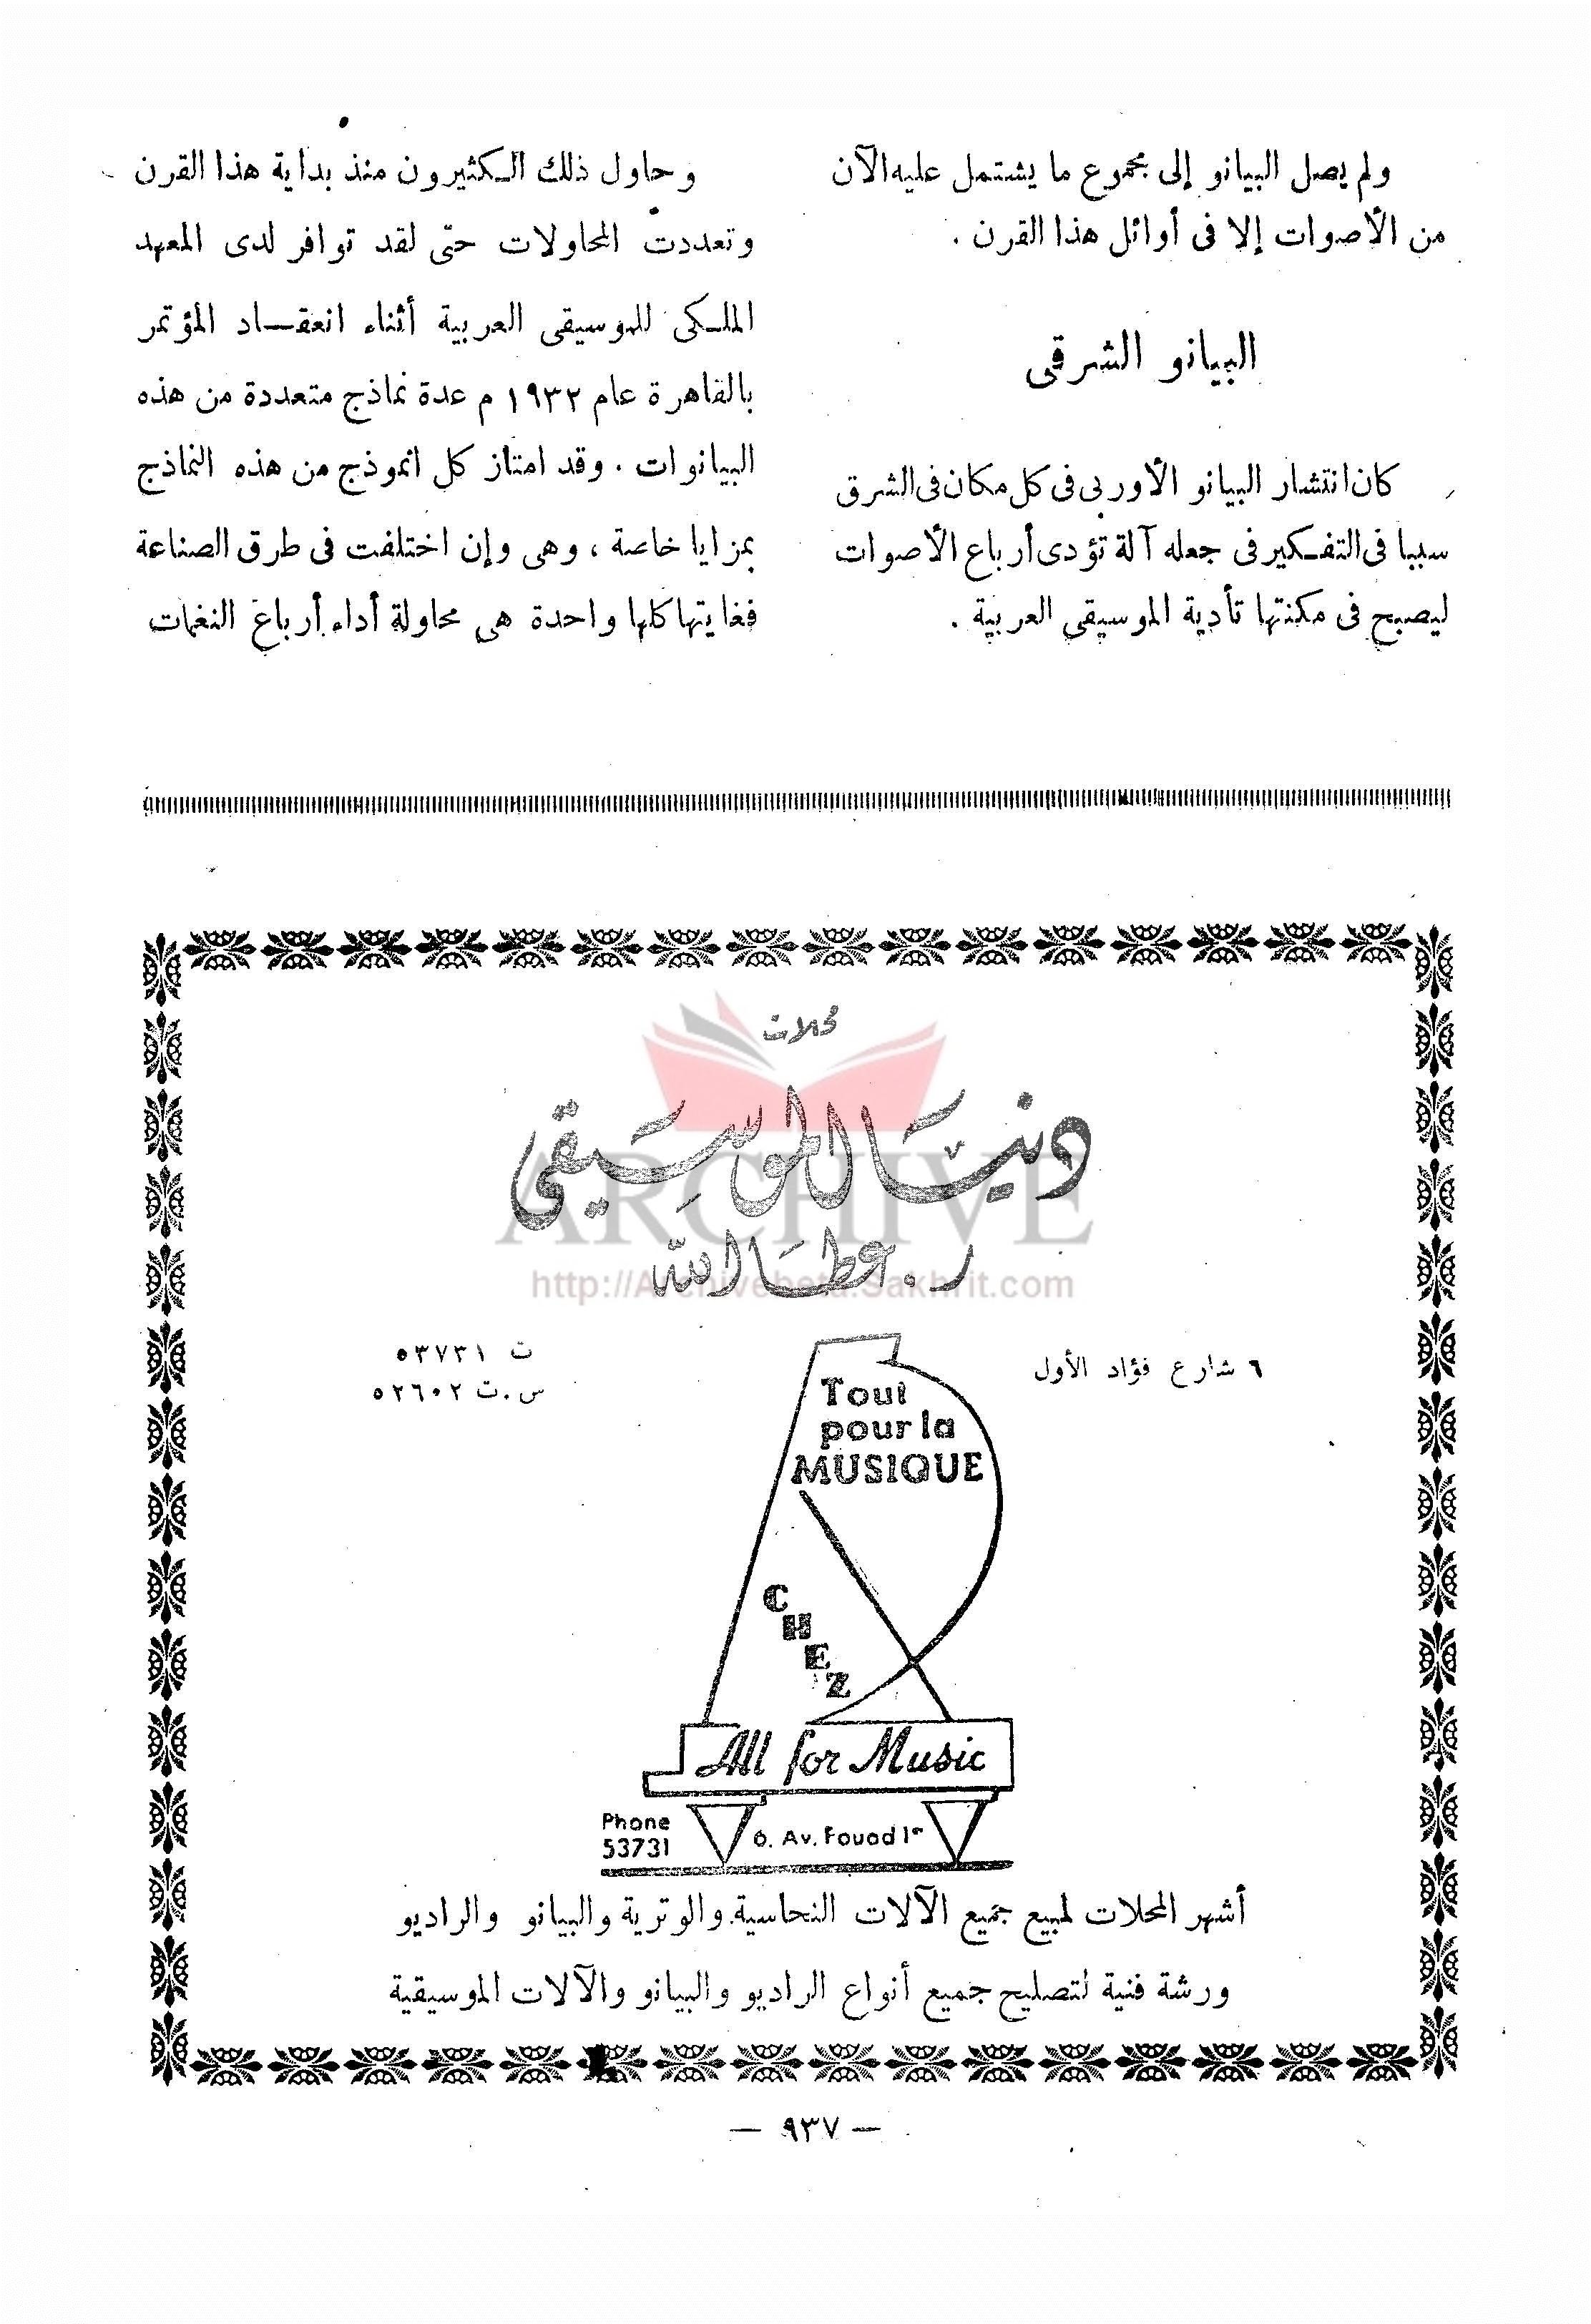 ولم يصل البيانو إلى مجموع ما يشتمل عليه الآن
من الأصوات إلا فى أوائل هذا القرن .
البيانو الشرقى
كان انتشار البيانو الأوربى فى كل مكان فى الشرق
سببا فى التفكير فى جعله آلة تؤدى أرباع الأصوات
ليصبح فى مكنتها تأدية الموسيقى العربية .
وحاول ذلك الكثيرون منذ بداية هذا القرن
وتعددت المحاولات حتى لقد توافر لدى المعهد
الملكى للموسيقى العربية أثناء انعقاد المؤتمر
بالقاهرة عام ١٩٣٢ م عدة نماذج متعددة من هذه
البيانوات . وقد امتاز كل انموذج من هذه النماذج
بمزايا خاصة ، وهى وإن اختلفت فى طرق الصناعة
فغايتها كلها واحدة هى محاولة أداء أرباع النغمات
محلات
دنيا الموسيقى
ر . عطا الله
ARCHIVE
http://Archivebeta.Sakhrit.com
٦ شارع فؤاد الأول
ت ٥٣٧٣١
س . ت ٥٢٦٠٢
Tout
pour la
MUSIQUE
CHEZ
All for Music
Phone
53731
6. Av. Fouad 1er
أشهر المحلات لمبيع جميع الآلات النحاسية والوترية والبيانو والراديو
ورشة فنية لتصليح جميع أنواع الراديو والبيانو والآلات الموسيقية
— ٩٣٧ —